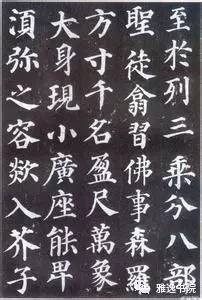 至於列三乘分八部
聖徒翕習佛事森羅
方寸千名盈尺萬象
大身現小廣座能卑
湏弥之容欻入芥子
雅逸书院